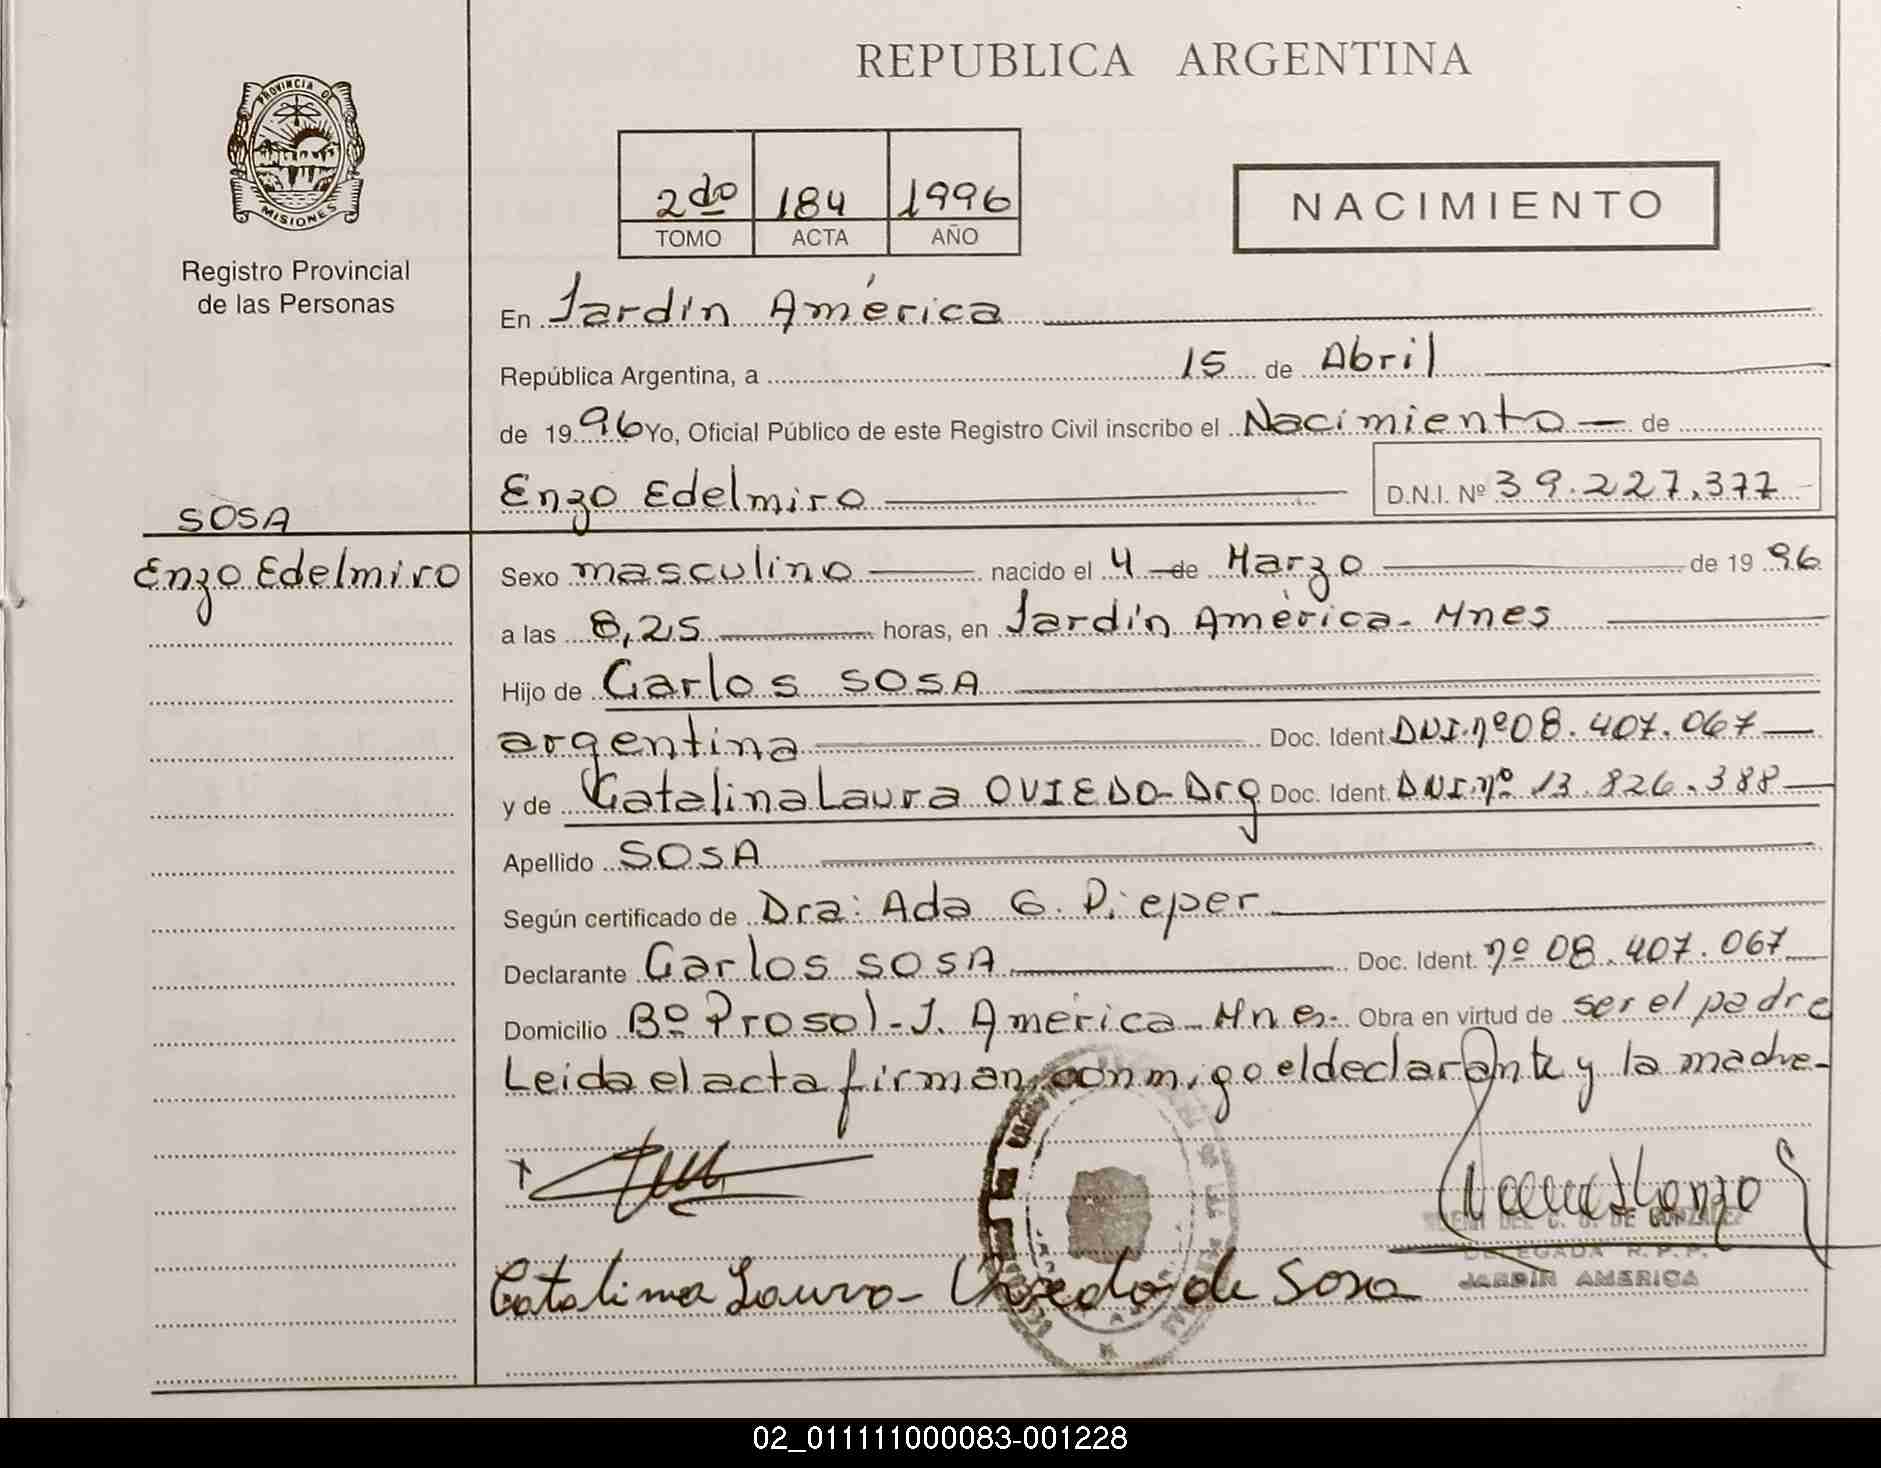 REPUBLICA ARGENTINA
PROVINCIA DE
MISIONES
Registro Provincial
de las Personas
2do 184 1996
TOMO ACTA AÑO
NACIMIENTO
En Jardín América
República Argentina, a 15 de Abril
de 1996 Yo, Oficial Público de este Registro Civil inscribo el Nacimiento — de
Enzo Edelmiro D.N.I. Nº 39.227.377
SOSA
Enzo Edelmiro
Sexo masculino nacido el 4 de Marzo de 1996
a las 8,25 horas, en Jardín América - Mnes
Hijo de Carlos SOSA
argentina Doc. Ident. DNI. nº 08.407.067
y de Catalina Laura OVIEDO - Arg Doc. Ident. DNI. nº 13.826.388
Apellido SOSA
Según certificado de Dra: Ada G. Pieper
Declarante Carlos SOSA Doc. Ident. nº 08.407.067
Domicilio Bº Prosol - J. América - Mnes - Obra en virtud de ser el padre
Leida el acta firman conmigo el declarante y la madre -
DE GONZALEZ
DELEGADA R.P.P.
JARDIN AMERICA
Catalina Laura - Oviedo de Sosa
02_011111000083-001228